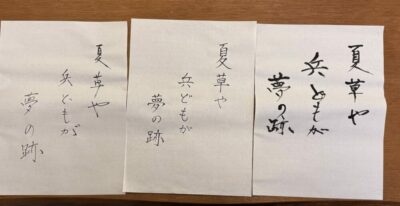 夏草や
兵どもが
夢の跡
夏草や
兵どもが
夢の跡
夏草や
兵どもが
夢の跡